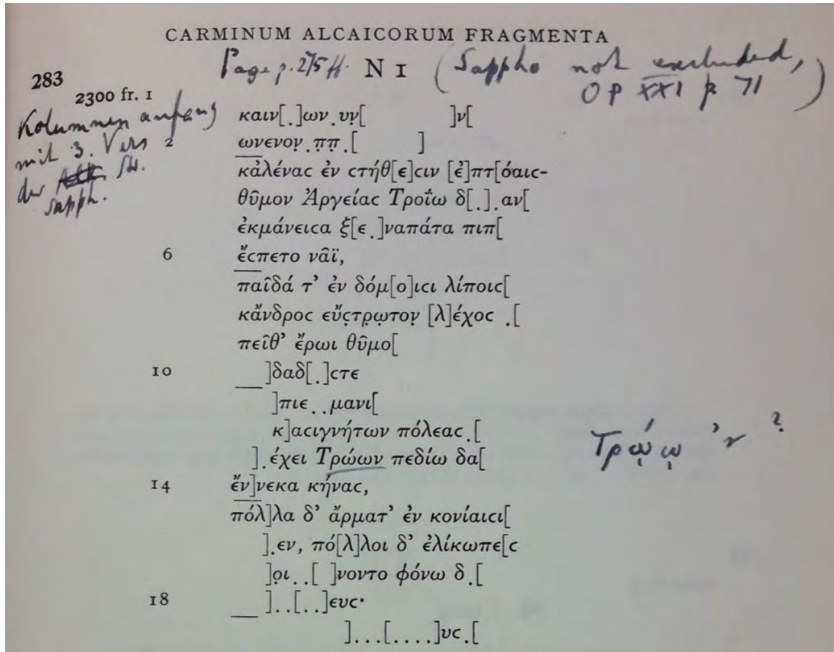 CARMINUM ALCAICORUM FRAGMENTA
Page p. 275 ff. N 1 (Sappho not excluded,
OP XXI p 71)
283
2300 fr. 1
Kolumnenanfang
mit 3. Vers
der Alk. Str.
sapph.
καιν[.]ων.υν̣[ ]ν[
2 ωνενον̣.π̣π̣.[ ]
κἀλένας ἐν στήθ[ε]σιν [ἐ]πτ[όαις-
θῦμον Ἀργείας Τροΐω δ[.].αν[
ἐκμάνεισα ξ[ε.]ναπάτα πιπ[
6 ἔσπετο νᾶϊ,
παῖδά τ’ ἐν δόμ[ο]ισι λίποις[
κἄνδρος εὔς̣τρ̣ωτον̣ [λ]έχος .[
πεῖθ’ ἔρωι θῦμο[
10 ]δαδ[.]στε
]πιε..μανι[
κ]ασιγνήτων πόλεας .[
].έχει Τρώων πεδίω δα[ Τρῴῳ ’ν ?
14 ἔν]νεκα κήνας,
πόλ]λα δ’ ἄρματ’ ἐν κονίαισι[
].εν, πό[λ]λοι δ’ ἐλίκωπε[ς
]ο̣ι..[ ]νοντο φόνω δ.[
18 ]..[..]ευς·
]...[....]υς.[